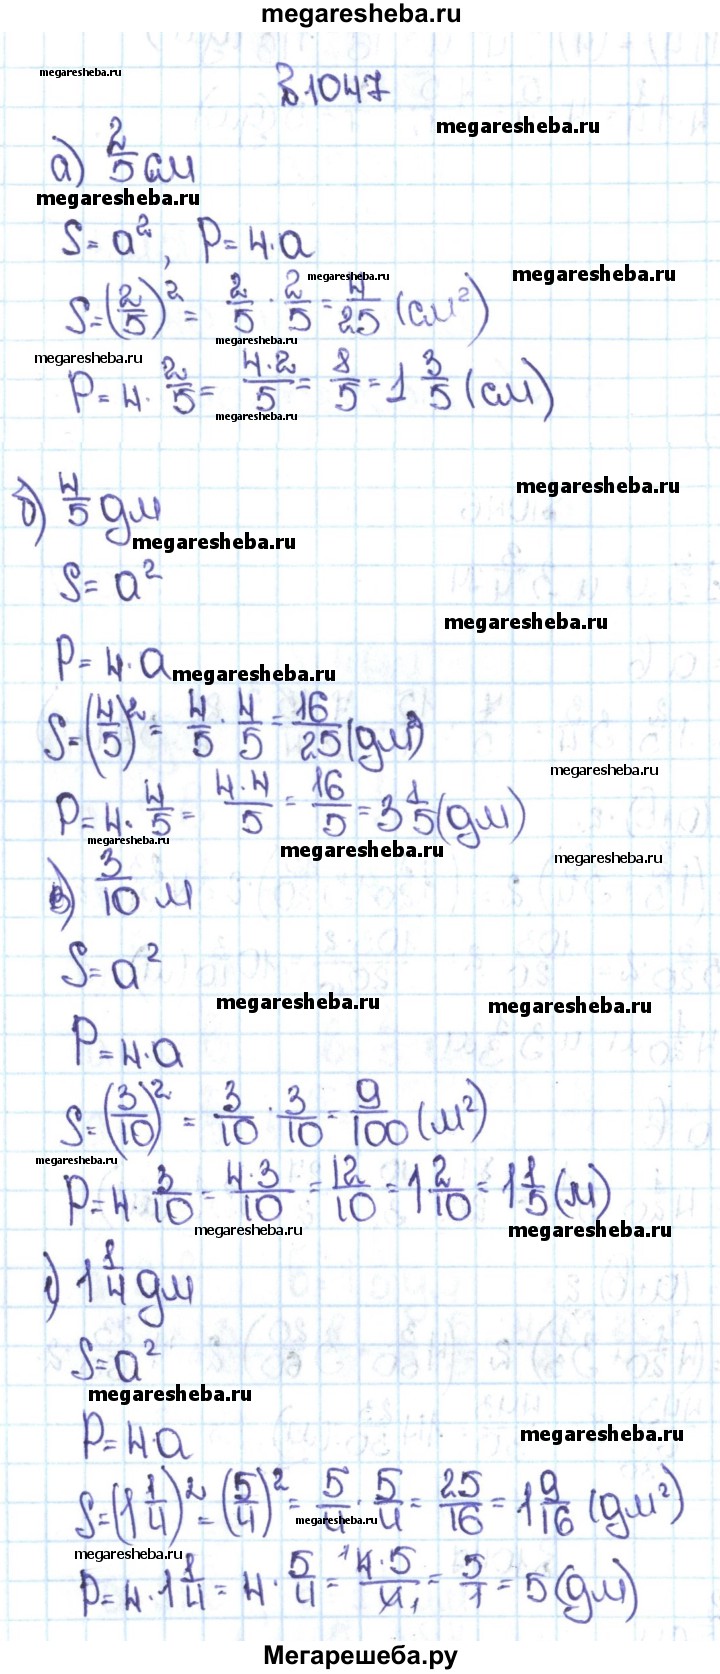 megaresheba.ru
megaresheba.ru
в1047
megaresheba.ru
а) 2/5 см
megaresheba.ru
S = a², P = 4·a
megaresheba.ru
megaresheba.ru
S = (2/5)² = 2/5 · 2/5 = 4/25 (см²)
megaresheba.ru
megaresheba.ru
P = 4 · 2/5 = 4·2/5 = 8/5 = 1 3/5 (см)
megaresheba.ru
б) 4/5 дм
megaresheba.ru
megaresheba.ru
S = a²
megaresheba.ru
P = 4·a
megaresheba.ru
S = (4/5)² = 4/5 · 4/5 = 16/25 (дм²)
megaresheba.ru
P = 4 · 4/5 = 4·4/5 = 16/5 = 3 1/5 (дм)
megaresheba.ru
megaresheba.ru
megaresheba.ru
в) 3/10 м
S = a²
megaresheba.ru
megaresheba.ru
P = 4·a
S = (3/10)² = 3/10 · 3/10 = 9/100 (м²)
megaresheba.ru
P = 4 · 3/10 = 4·3/10 = 12/10 = 1 2/10 = 1 1/5 (м)
megaresheba.ru
megaresheba.ru
г) 1 1/4 дм
S = a²
megaresheba.ru
P = 4a
megaresheba.ru
S = (1 1/4)² = (5/4)² = 5/4 · 5/4 = 25/16 = 1 9/16 (дм²)
megaresheba.ru
megaresheba.ru
P = 4 · 1 1/4 = 4 · 5/4 = ¹4·5/4₁ = 5/1 = 5 (дм)
Мегарешеба.ру